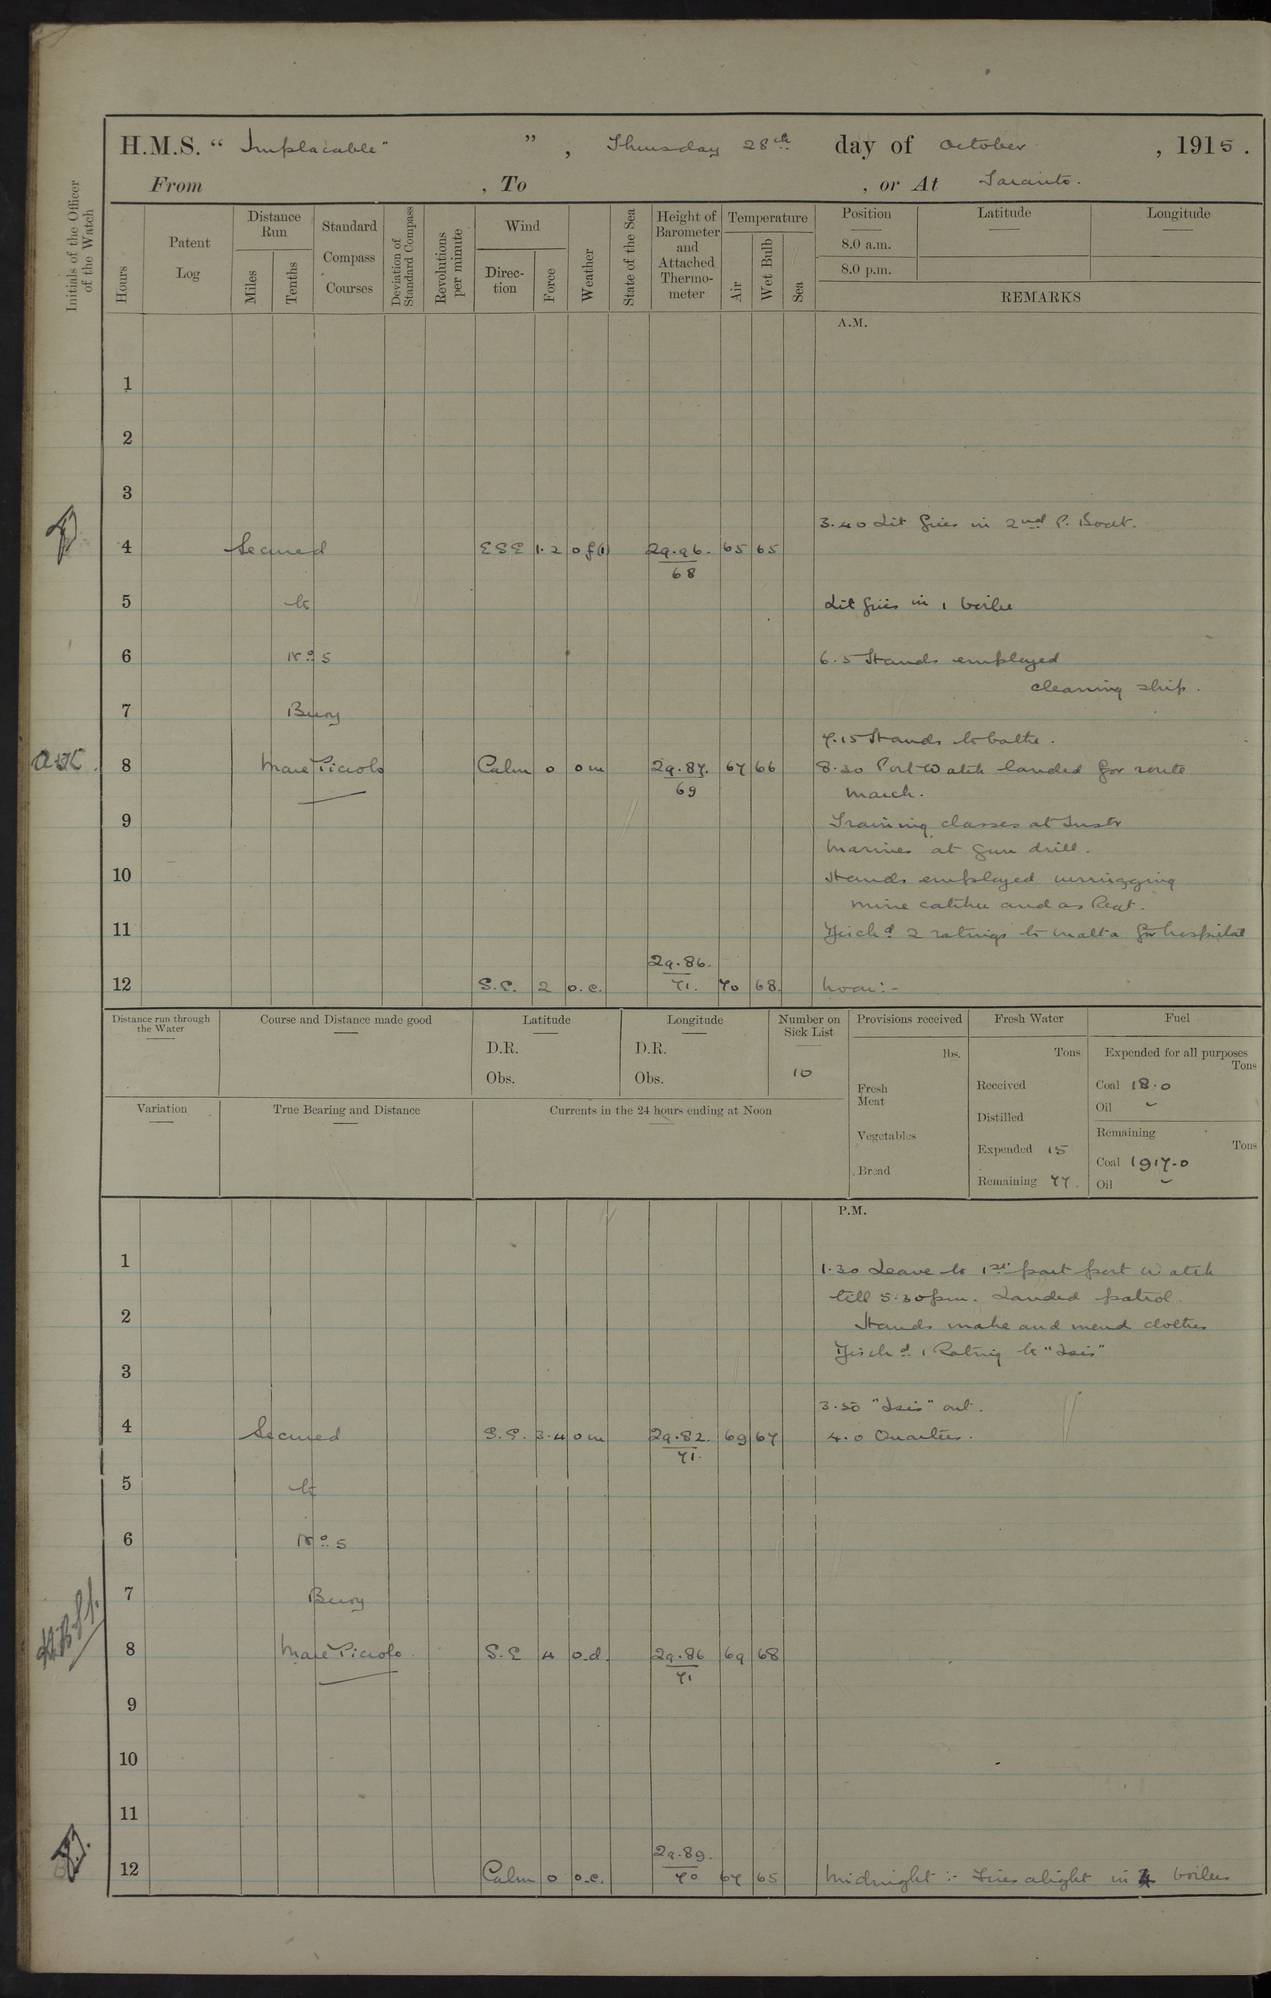 H.M.S. " Implacable" " , Thursday 28th day of October , 1915 .
From , To , or At Taranto.
Initials of the Officer of the Watch
Hours
Patent Log
Distance Run
Miles
Tenths
Standard Compass Courses
Deviation of Standard Compass
Revolutions per minute
Wind
Direc-tion
Force
Weather
State of the Sea
Height of Barometer and Attached Thermo-meter
Temperature
Air
Wet Bulb
Sea
Position
Latitude
Longitude
8.0 a.m.
8.0 p.m.
REMARKS
A.M.
1
2
3
3.40 Lit fires in 2nd P. Boat.
4 Secured ESE 1.2 o f(1) 29.96. 65 65
68
5 to Lit fires in 1 boiler
6 No 5 6.5 Hands employed
cleaning ship.
7 Buoy
7.15 Hands to bathe.
8 Mare Piccolo Calm 0 om 29.87. 67 66 8.30 Port Watch landed for route
69 march.
9 Training classes at Instr
Marines at gun drill.
10 Hands employed unrigging
mine catcher and as Reqt.
11 Disch'd 2 ratings to Malta for hospital
29.86.
12 S.E. 2 o.c. 71. 70 68. Noon:-
Distance run through the Water
Course and Distance made good
Latitude
D.R.
Obs.
Longitude
D.R.
Obs.
Number on Sick List
10
Provisions received
lbs.
Fresh Meat
Vegetables
Bread
Fresh Water
Tons
Received
Distilled
Expended 15
Remaining 77.
Fuel
Expended for all purposes
Tons
Coal 18.0
Oil ~
Remaining
Tons
Coal 1917.0
Oil ~
Variation
True Bearing and Distance
Currents in the 24 hours ending at Noon
P.M.
1 1.30 Leave to 1st part port watch
till 5.30pm. Landed patrol.
2 Hands make and mend clothes
Disch'd 1 Rating to "Isis"
3
3.50 "Isis" out.
4 Secured S.E. 3.4 om 29.82. 69 67 4.0 Quarters.
71.
5 to
6 No 5
7 Buoy
8 Mare Piccolo. S.E 4 o.d. 29.86 69 68
71
9
10
11
29.89.
12 Calm 0 o.c. 70 67 65 Midnight :- Fires alight in 4 boilers